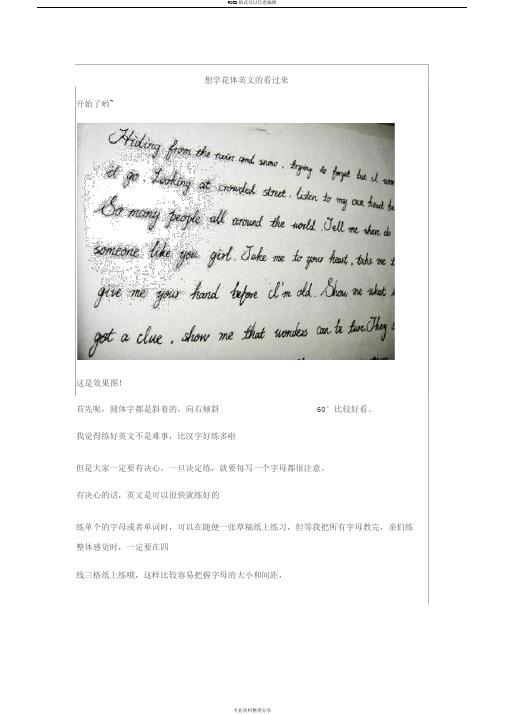 WORD 格式可以任意编辑
想学花体英文的看过来
开始了哟~
Hiding from the rain and snow, trying to forget but I won
it go, Looking at crowded street, listen to my own heart be
So many people all around the world. Tell me when do
someone like you girl. Take me to your heart, take me t
give me your hand before I'm old. Show me what
got a clue, show me that wonders can be ture. They
这是效果图!
首先呢，圆体字都是斜着的，向右倾斜 60°比较好看。
我觉得练好英文不是难事，比汉字好练多啦
但是大家一定要有决心，一旦决定练，就要每写一个字母都很注意。
有决心的话，英文是可以很快就练好的
练单个的字母或者单词时，可以在随便一张草稿纸上练习，但等我把所有字母教完，亲们练
整体感觉时，一定要在四
线三格纸上练哦，这样比较容易把握字母的大小和间距，
专业资料整理分享